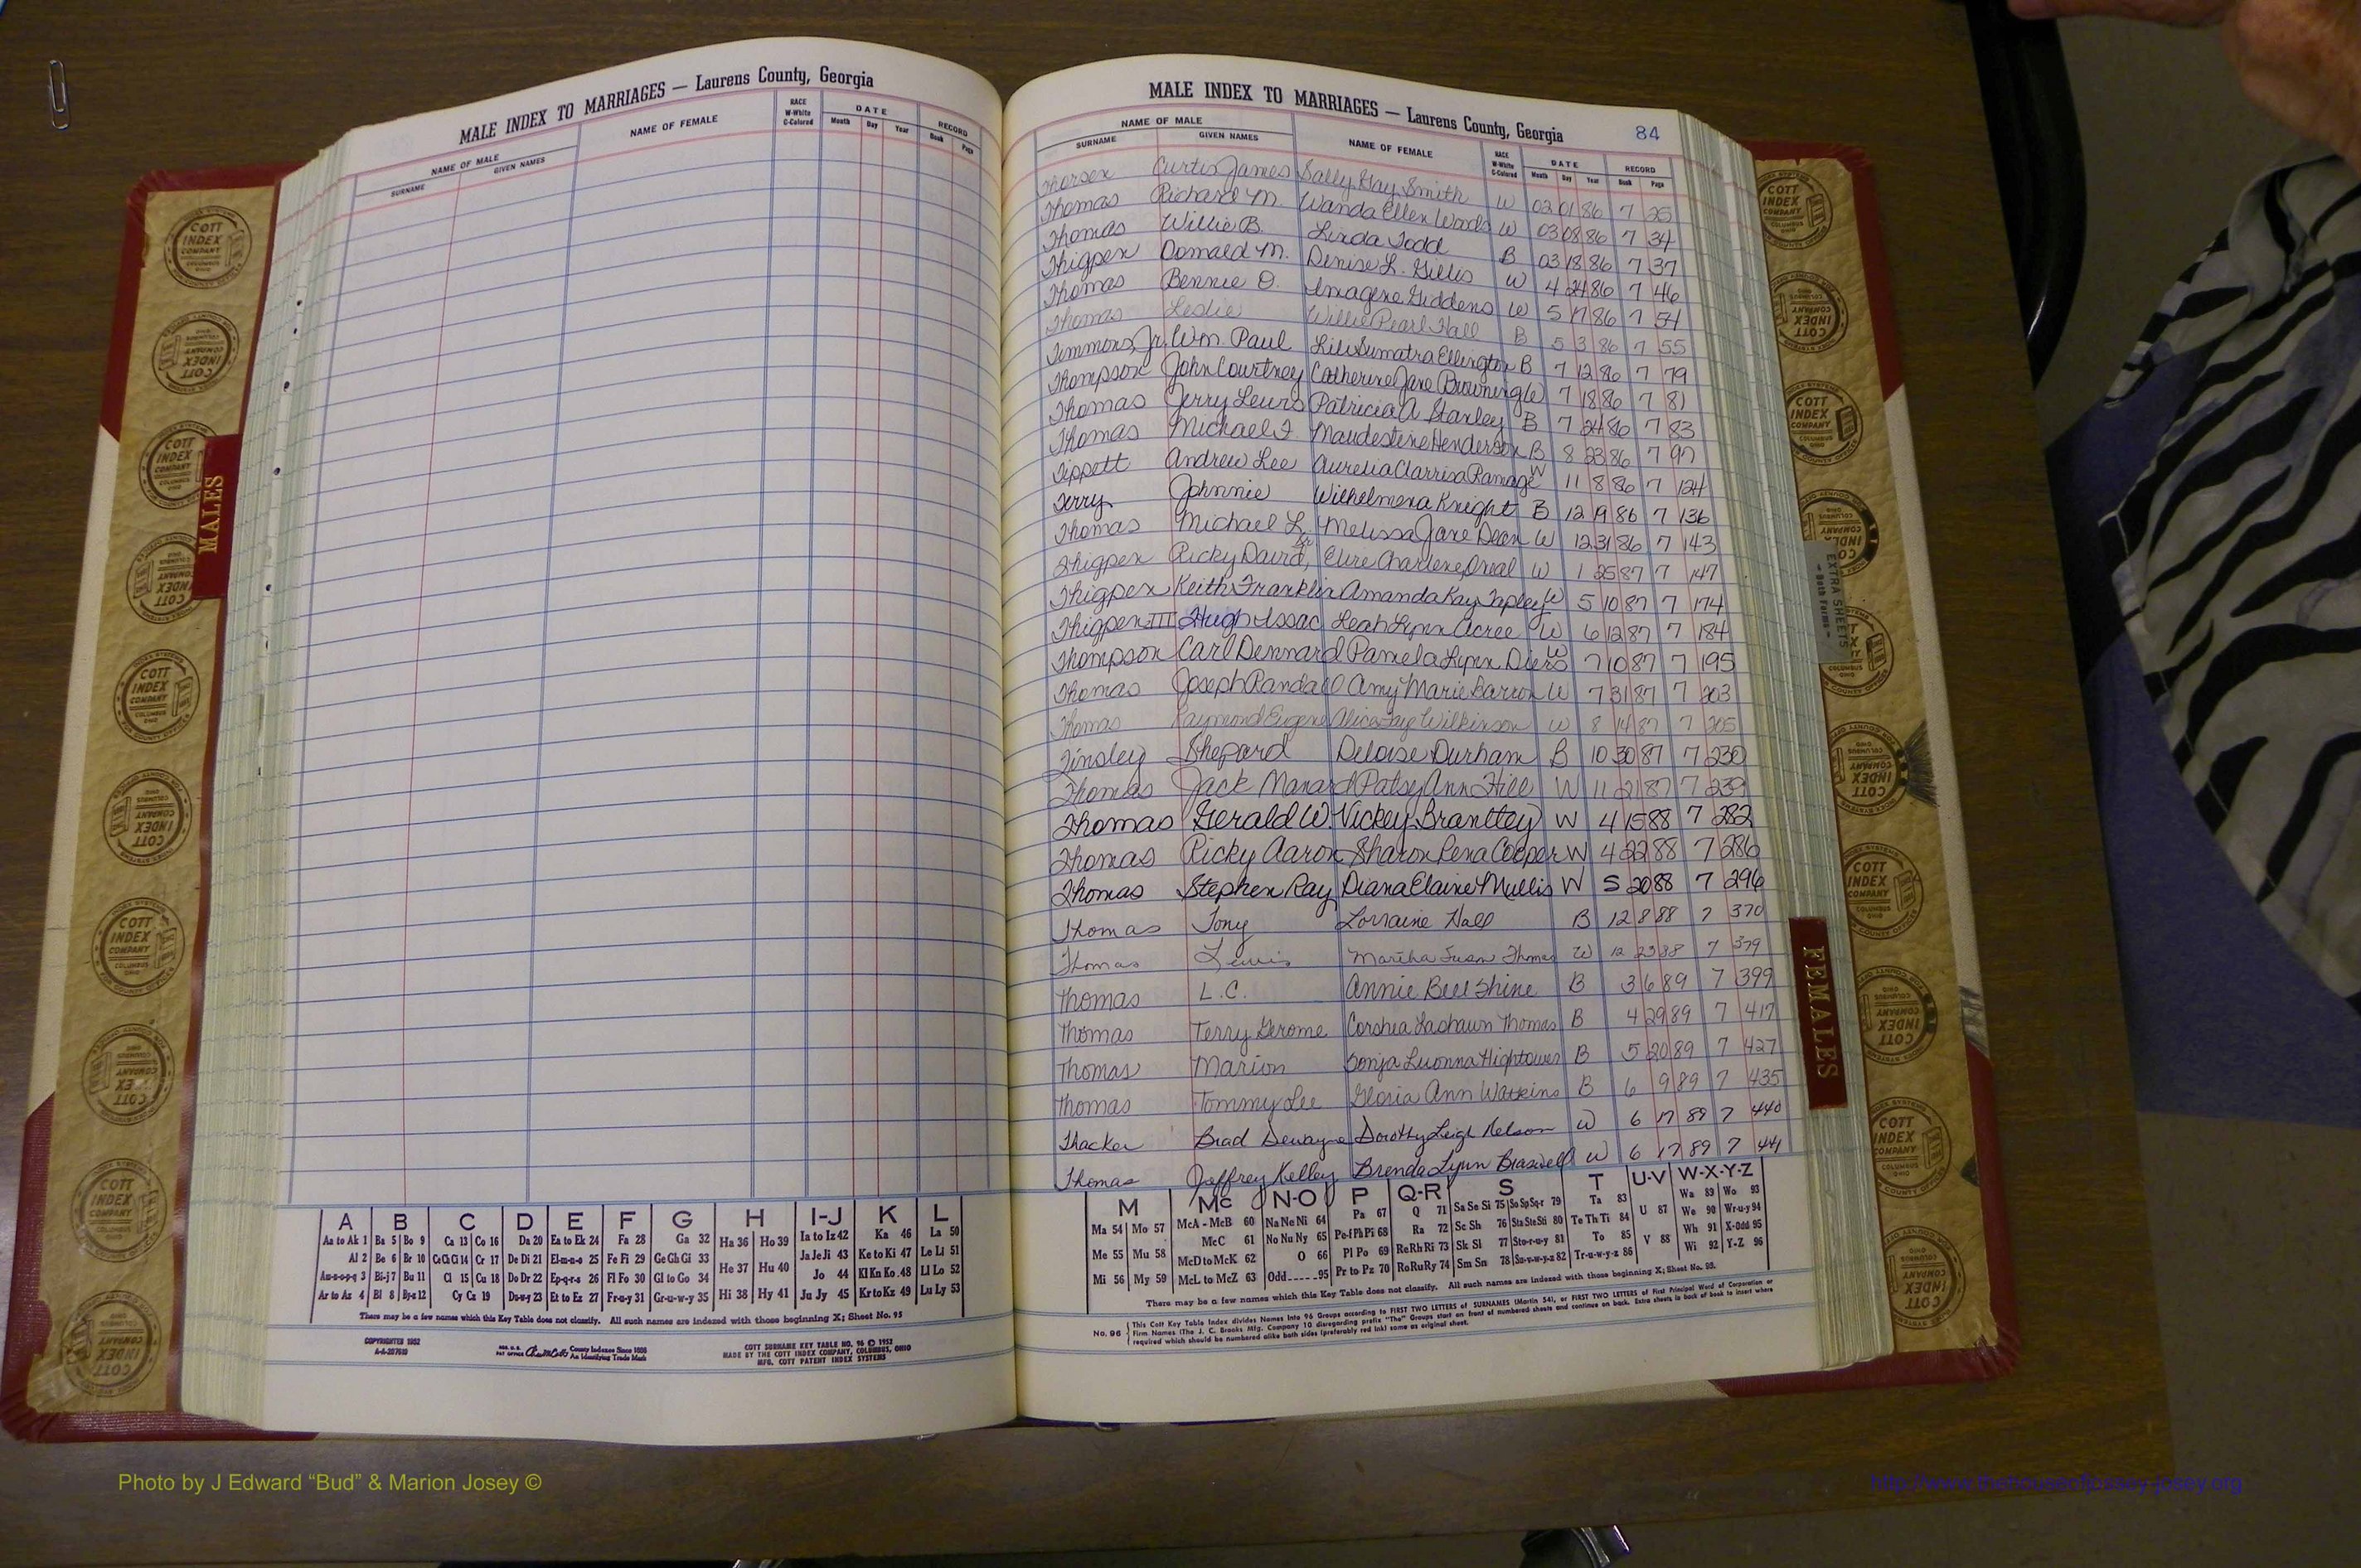 MALE INDEX TO MARRIAGES — Laurens County, Georgia
NAME OF MALE
SURNAME GIVEN NAMES
NAME OF FEMALE
RACE
W-White
C-Colored
DATE
Month Day Year
RECORD
Book Page
MALES
A B C D E F G H I-J K L
Aa to Ak 1 Ba 5 Bo 9 Ca 13 Co 16 Da 20 Ea to Ek 24 Fa 28 Ga 32 Ha 36 Ho 39 Ia to Iz 42 Ka 46 La 50
Al 2 Be 6 Br 10 CeChCi 14 Cr 17 De Di 21 El-m-n-o 25 Fe Fi 29 GeGhGi 33 He 37 Hu 40 JaJeJi 43 Ke to Ki 47 Le Li 51
Am-n-o-p-q 3 Bi-j 7 Bu 11 Cl 15 Cu 18 Do Dr 22 Ep-q-r-s 26 Fl Fo 30 Gl to Go 34 Jo 44 Kl Kn Ko 48 Ll Lo 52
Ar to Az 4 Bl 8 By-z 12 Cy Cz 19 Du-w-y 23 Et to Ez 27 Fr-u-y 31 Gr-u-w-y 35 Hi 38 Hy 41 Ju Jy 45 Kr to Kz 49 Lu Ly 53
There may be a few names which this Key Table does not classify. All such names are indexed with those beginning X; Sheet No. 95
COPYRIGHTED 1952
County Indexes Since 1888
An Identifying Trade Mark
COTT SURNAME KEY TABLE NO. 96 © 1952
MADE BY THE COTT INDEX COMPANY, COLUMBUS, OHIO
MFG. COTT PATENT INDEX SYSTEMS
MALE INDEX TO MARRIAGES — Laurens County, Georgia 84
NAME OF MALE
SURNAME GIVEN NAMES
NAME OF FEMALE
RACE
W-White
C-Colored
DATE
Month Day Year
RECORD
Book Page
Curtis James Sally Kay Smith W 02 01 86 7 25
Thomas Richard M. Wanda Ellen Woods W 03 08 86 7 34
Thomas Willie B. Linda Todd B 03 18 86 7 37
Thigpen Donald M. Denise L. Gillis W 4 24 86 7 46
Thomas Bennie O. Imagene Giddens W 5 17 86 7 54
Thomas Leslie Willie Pearl Hall B 5 3 86 7 55
Timmons, Jr. Wm. Paul Lili Sumatra Ellington B 7 12 86 7 79
Thompson John Courtney Catherine Jane Browning W 7 18 86 7 81
Thomas Jerry Lewis Patricia A. Stanley B 7 24 86 7 83
Thomas Michael Maudestine Henderson B 8 23 86 7 97
Tippett Andrew Lee Aurelia Clarrisa Ramage W 11 8 86 7 124
Terry Johnnie Wilhelmena Knight B 12 19 86 7 136
Thomas Michael L. Melissa Jane Dean W 12 31 86 7 143
Thigpen Ricky David, Jr. Charlene W 1 25 87 7 147
Thigpen Keith Franklin Amanda Kay Tapley W 5 10 87 7 174
Thigpen III Hugh Issac Leah Lynn Acree W 6 12 87 7 184
Thompson Carl Dennard Pamela Lynn W 7 10 87 7 195
Thomas Joseph Randall Amy Marie Barron W 7 31 87 7 203
Thomas Raymond Eugene Alice Faye Wilkinson W 8 14 87 7 205
Tinsley Shepard Deloise Durham B 10 30 87 7 230
Thomas Jack Manard Patsy Ann Hill W 11 21 87 7 239
Thomas Gerald W. Vickey Brantley W 4 15 88 7 282
Thomas Ricky Aaron Sharon Rena Cooper W 4 22 88 7 286
Thomas Stephen Ray Diana Elaine Mullis W 5 20 88 7 296
Thomas Tony Lorraine Hall B 12 8 88 7 370
Thomas Lewis Martha Susan Thomas W 12 23 88 7 379
Thomas L.C. Annie Bell Shine B 3 6 89 7 399
Thomas Terry Gerome Corshia Lashaun Thomas B 4 29 89 7 417
Thomas Marion Sonja Luonna Hightower B 5 20 89 7 427
Thomas Tommy Lee Gloria Ann Watkins B 6 9 89 7 435
Thacker Brad Dewayne Dorothy Leigh Nelson W 6 17 89 7 440
Thomas Jeffrey Kelley Brenda Lynn Braswell W 6 17 89 7 441
M Mc N-O P Q-R S T U-V W-X-Y-Z
Ma 54 Mo 57 McA - McB 60 Na Ne Ni 64 Pa 67 Q 71 Sa Se Si 75 So Sp Sq-r 79 Ta 83 U 87 Wa 89 Wo 93
Me 55 Mu 58 McC 61 No Nu Ny 65 Pe-f Ph Pi 68 Ra 72 Sc Sh 76 Sta Ste Sti 80 Te Th Ti 84 We 90 Wr-u-y 94
McD to McK 62 O 66 Pl Po 69 ReRhRi 73 Sk Sl 77 Sto-r-u-y 81 To 85 V 88 Wh 91 X-Odd 95
Mi 56 My 59 McL to McZ 63 Odd 95 Pr to Pz 70 RoRuRy 74 Sm Sn 78 Su-v-w-y-z 82 Tr-u-w-y-z 86 Wi 92 Y-Z 96
There may be a few names which this Key Table does not classify. All such names are indexed with those beginning X; Sheet No. 95.
No. 96 This Cott Key Table Index divides Names into 96 Groups according to FIRST TWO LETTERS of SURNAMES (Martin 54), or FIRST TWO LETTERS of First Principal Word of Corporation or
Firm Names (The J. C. Brooks Mfg. Company 10 disregarding prefix "The") Groups start on front of numbered sheets and continue on back. Extra sheets in back of book to insert where
required which should be numbered alike both sides (preferably red ink) same as original sheet.
EXTRA SHEETS
— Both Forms —
FEMALES
COTT
INDEX
COMPANY
COLUMBUS
OHIO
Photo by J Edward “Bud” & Marion Josey ©
http://www.thehouseofjossey-josey.org